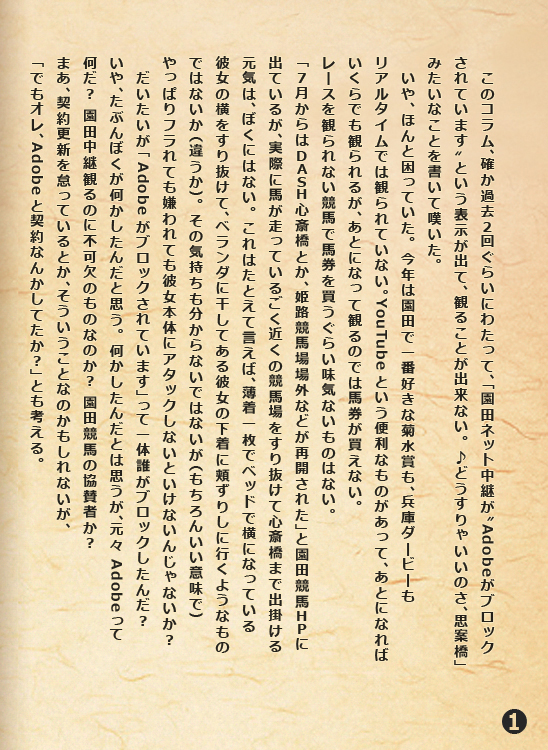 このコラム、確か過去２回ぐらいにわたって、「園田ネット中継が〝Adobeがブロック
されています〟という表示が出て、観ることが出来ない。♪どうすりゃいいのさ、思案橋」
みたいなことを書いて嘆いた。
いや、ほんと困っていた。今年は園田で一番好きな菊水賞も、兵庫ダービーも
リアルタイムでは観られていない。YouTubeという便利なものがあって、あとになれば
いくらでも観られるが、あとになって観るのでは馬券が買えない。
レースを観られない競馬で馬券を買うぐらい味気ないものはない。
「７月からはDASH心斎橋とか、姫路競馬場場外などが再開された」と園田競馬HPに
出ているが、実際に馬が走っているごく近くの競馬場をすり抜けて心斎橋まで出掛ける
元気は、ぼくにはない。これはたとえて言えば、薄着一枚でベッドで横になっている
彼女の横をすり抜けて、ベランダに干してある彼女の下着に頬ずりしに行くようなもの
ではないか(違うか)。その気持ちも分からないではないが(もちろんいい意味で)
やっぱりフラれても嫌われても彼女本体にアタックしないといけないんじゃないか?
だいたいが「Adobeがブロックされています」って一体誰がブロックしたんだ?
いや、たぶんぼくが何かしたんだと思う。何かしたんだとは思うが、元々Adobeって
何だ? 園田中継観るのに不可欠のものなのか? 園田競馬の協賛者か?
まあ、契約更新を怠っているとか、そういうことなのかもしれないが、
「でもオレ、Adobeと契約なんかしてたか?」とも考える。
1